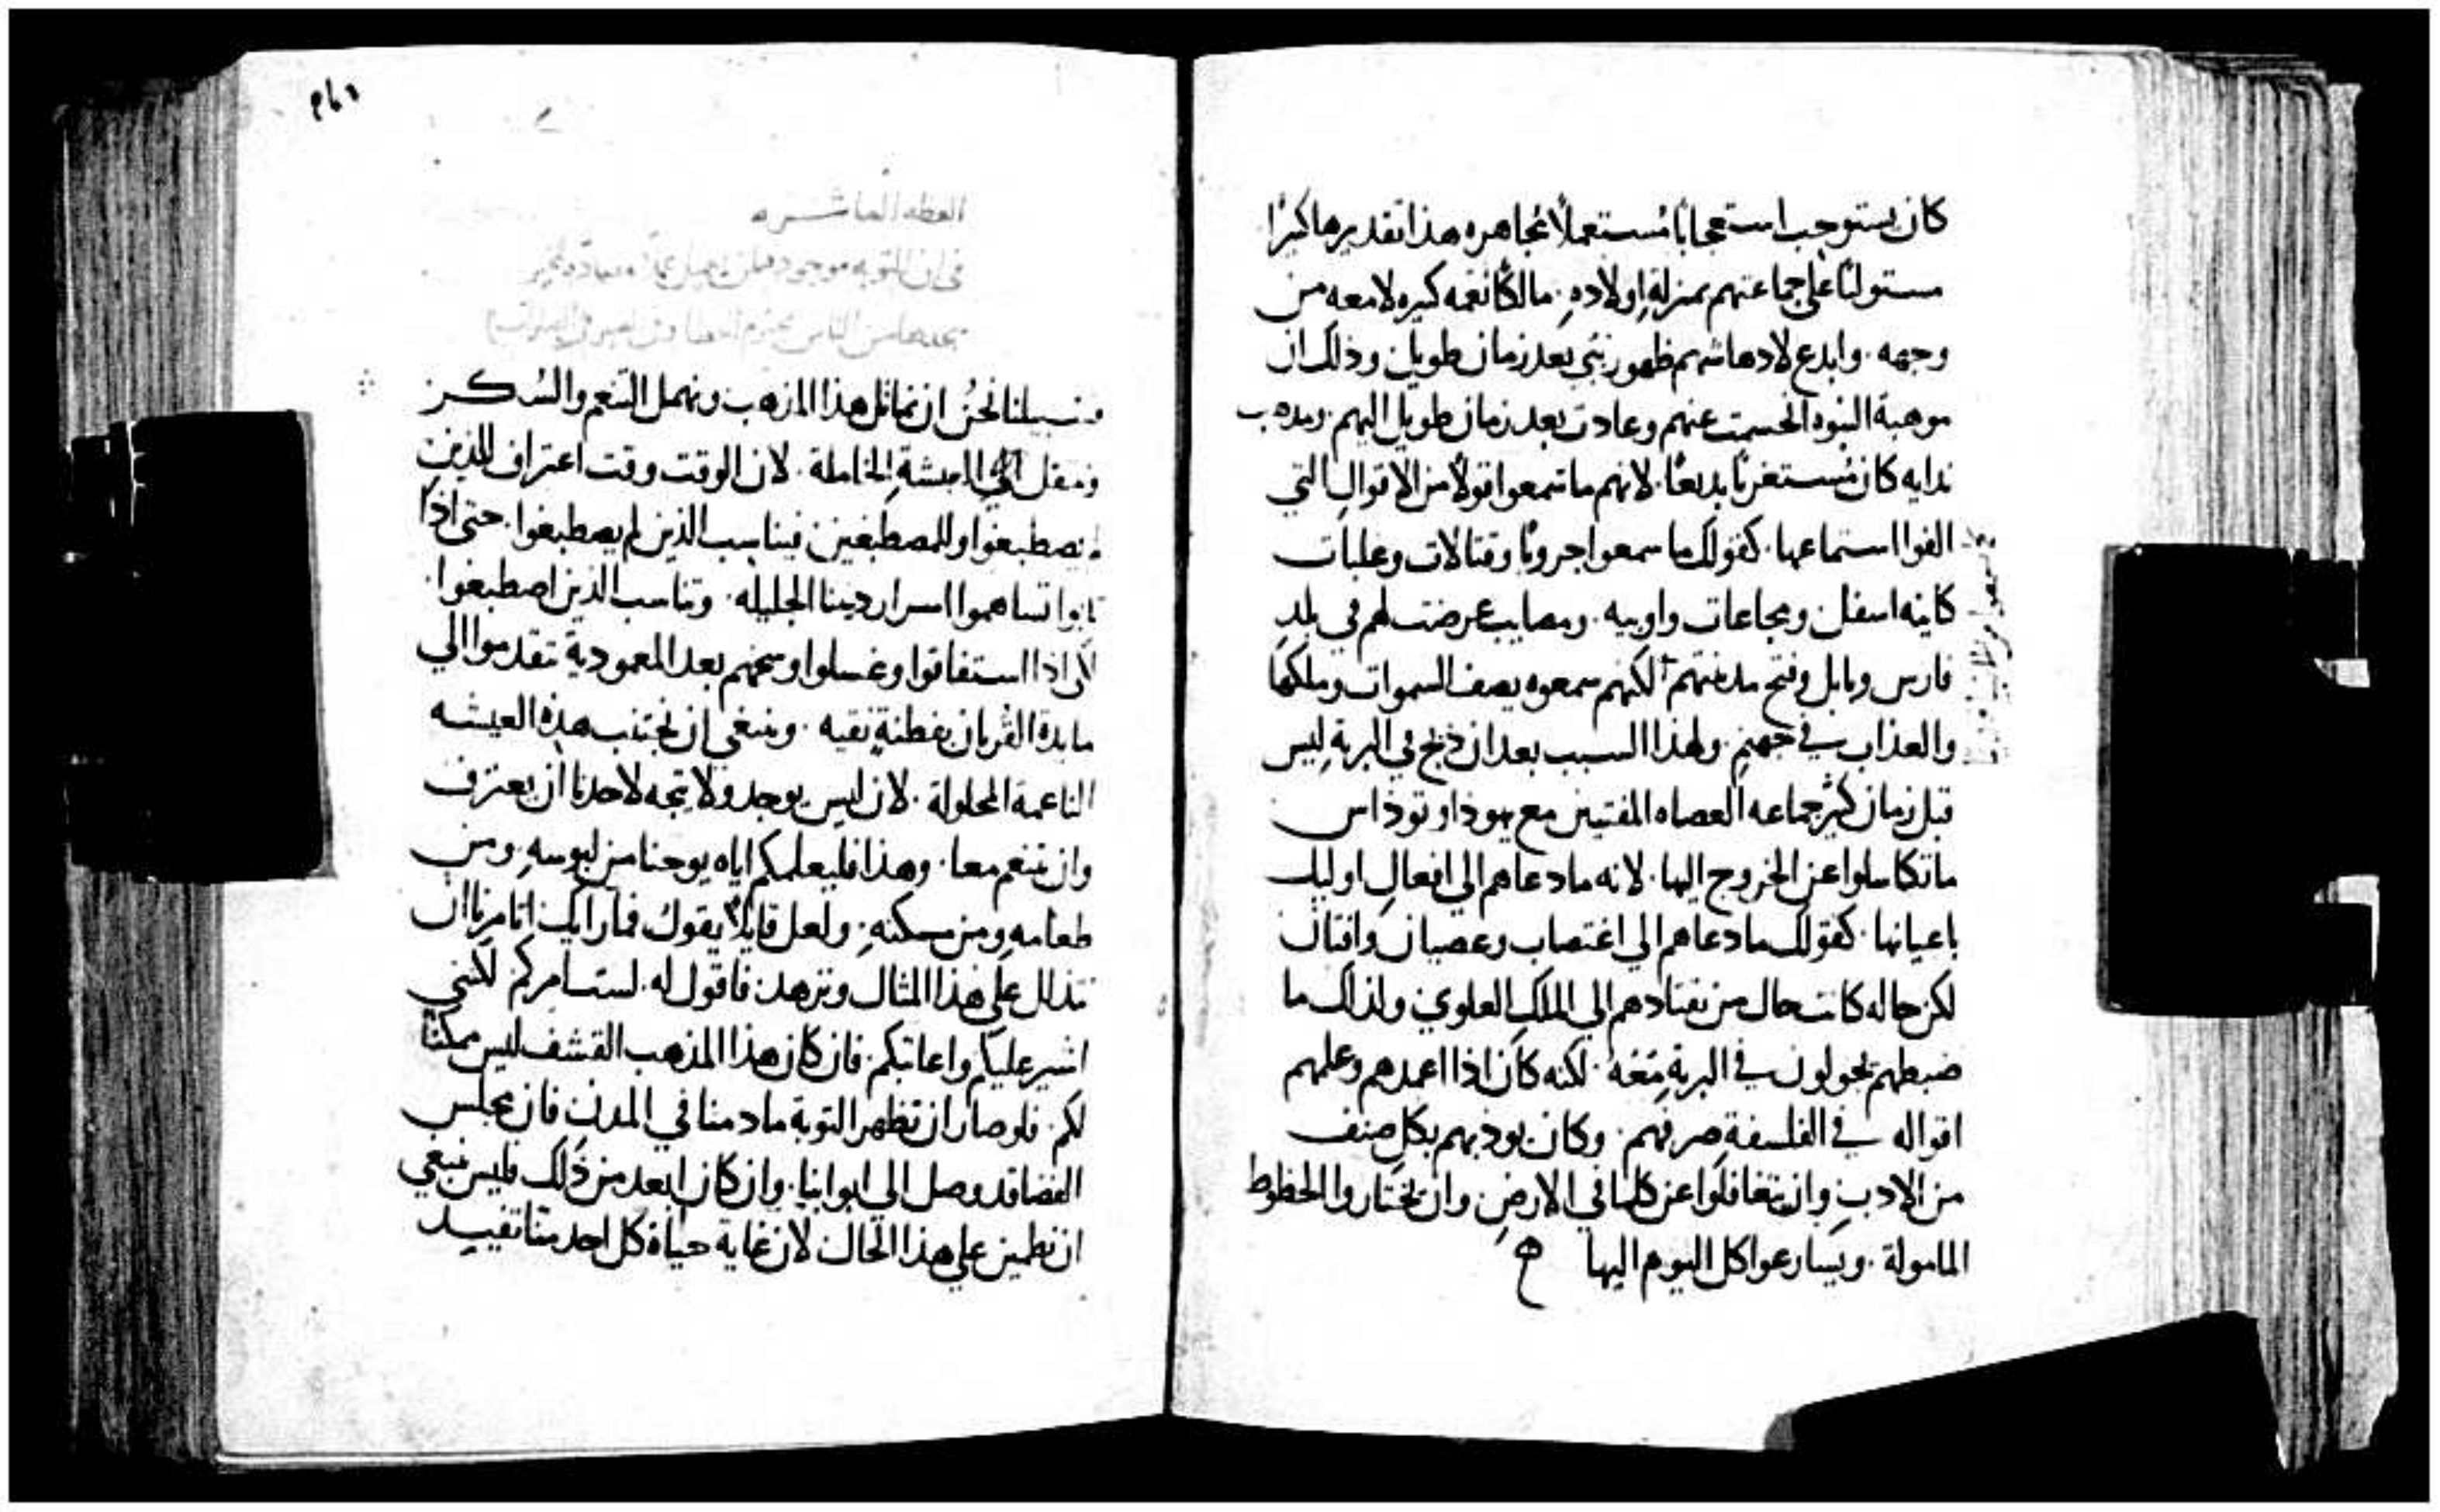 كان يستوجب استعجابا مستعملا مجاهره هذا تقديرها كبرا
مستوليا على جماعتهم بمنزلة اولاده. مالكا نعمه كبيره لامعه من
وجهه. وابدع لادهاشهم ظهور نبي بعد زمان طويل وذلك ان
موهبة النبوه انحسمت عنهم وعادت بعد زمان طويل اليهم. ومذهب
ندايه كان مستغربا بديعا. لانهم ما سمعوا قولا من الاقوال التي
الفوا استماعها. كقولك ما سمعوا حروبا وقتالات وغلبات
كاينه اسفل ومجاعات واوبيه. ومصايب عرضت لهم في بلد
فارس وبابل وفتح مدينتهم لكنهم سمعوه يصف السموات وملكها
والعذاب في جهنم. ولهذا السبب بعد ان ذبح في البرية ليس
قبل زمان كثير جماعه العصاه المفتنين مع يهوذا وتوذاس
ما تكاسلوا عن الخروج اليها. لانه ما دعاهم الي افعال اوليك
باعيانها. كقولك ما دعاهم الي اغتصاب وعصيان وافتتان
لكن حاله كانت حال من يقتادهم الي الملك العلوي ولذلك ما
ضبطهم يجولون في البرية معه. لكنه كان اذا اعمدهم وعلمهم
اقواله في الفلسفة صرفهم. وكان يودبهم بكل صنف
من الادب وان يتغافلوا عن كلما في الارض وان يختاروا الحظوظ
المامولة. ويسارعوا كل اليوم اليها
العظه العاشره
في ان التوبه موجوده
فسبيلنا نحن ان نماثل هذا المذهب ونهمل التنعم والسكر
وننتقل الي العيشة الخاملة. لان الوقت وقت اعتراف للذين
لم يصطبغوا وللمصطبغين فيناسب الذين لم يصطبغوا. حتى اذا
تابوا تساهموا اسرار ديننا الجليله. وتناسب الذين اصطبغوا
لكي اذا استفاقوا وغسلوا وسخهم بعد المعمودية تقدموا الي
مايدة القربان بفطنة نقيه. وينبغي ان نجتنب هذه العيشه
الناعمة المحلولة. لان ليس يوجد ولا يتجه لاحدنا ان يعترف
وان يتنعم معا. وهذا فليعلمكم اياه يوحنا من لبوسه ومن
طعامه ومن مسكنه. ولعل قايلا يقول فما رايك اتامرنا ان
نتذلل علي هذا المثال ونزهد. فاقول له لست امركم لكنني
اشير عليكم واعاتبكم. فان كان هذا المذهب القشف ليس ممكنا
لكم. فلو صار ان تظهر التوبة ما دمنا في المدن فان مجلس
القضا قد وصل الي ابوابنا. وان كان ابعد من ذلك فليس ينبغي
ان نطمين علي هذا الحال لان غاية حياة كل احد منا تفيد